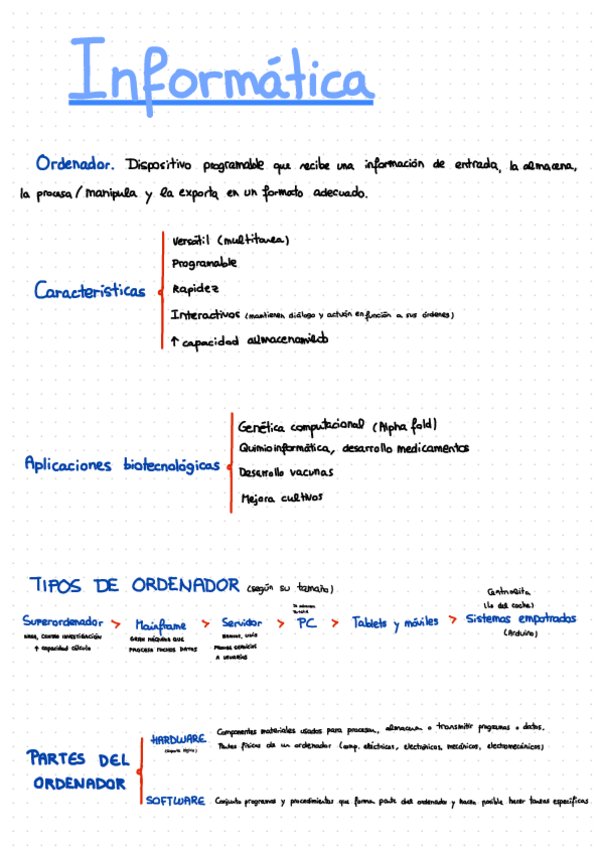 Informática
Ordenador. Dispositivo programable que recibe una información de entrada, la almacena,
la procesa / manipula y la exporta en un formato adecuado.
Características
Versátil (multitarea)
Programable
Rapidez
Interactivos (mantienen diálogo y actúan en función a sus órdenes)
↑ capacidad almacenamiento
Aplicaciones biotecnológicas
Genética computacional (Alpha fold)
Quimioinformática, desarrollo medicamentos
Desarrollo vacunas
Mejora cultivos
TIPOS DE ORDENADOR (según su tamaño)
Superordenador > Mainframe > Servidor > PC > Tablets y móviles > Sistemas empotrados
NASA, CENTRO INVESTIGACIÓN
↑ capacidad cálculo
GRAN MÁQUINA QUE
PROCESA MUCHOS DATOS
A USUARIOS
Centralita
(la del coche)
(Arduino)
PARTES DEL
ORDENADOR
HARDWARE
Componentes materiales usados para procesar, almacenar o transmitir programas o datos.
Partes físicas de un ordenador (comp. eléctricos, electrónicos, mecánicos, electromecánicos)
SOFTWARE Conjunto programas y procedimientos que forma parte del ordenador y hacen posible hacer tareas específicas